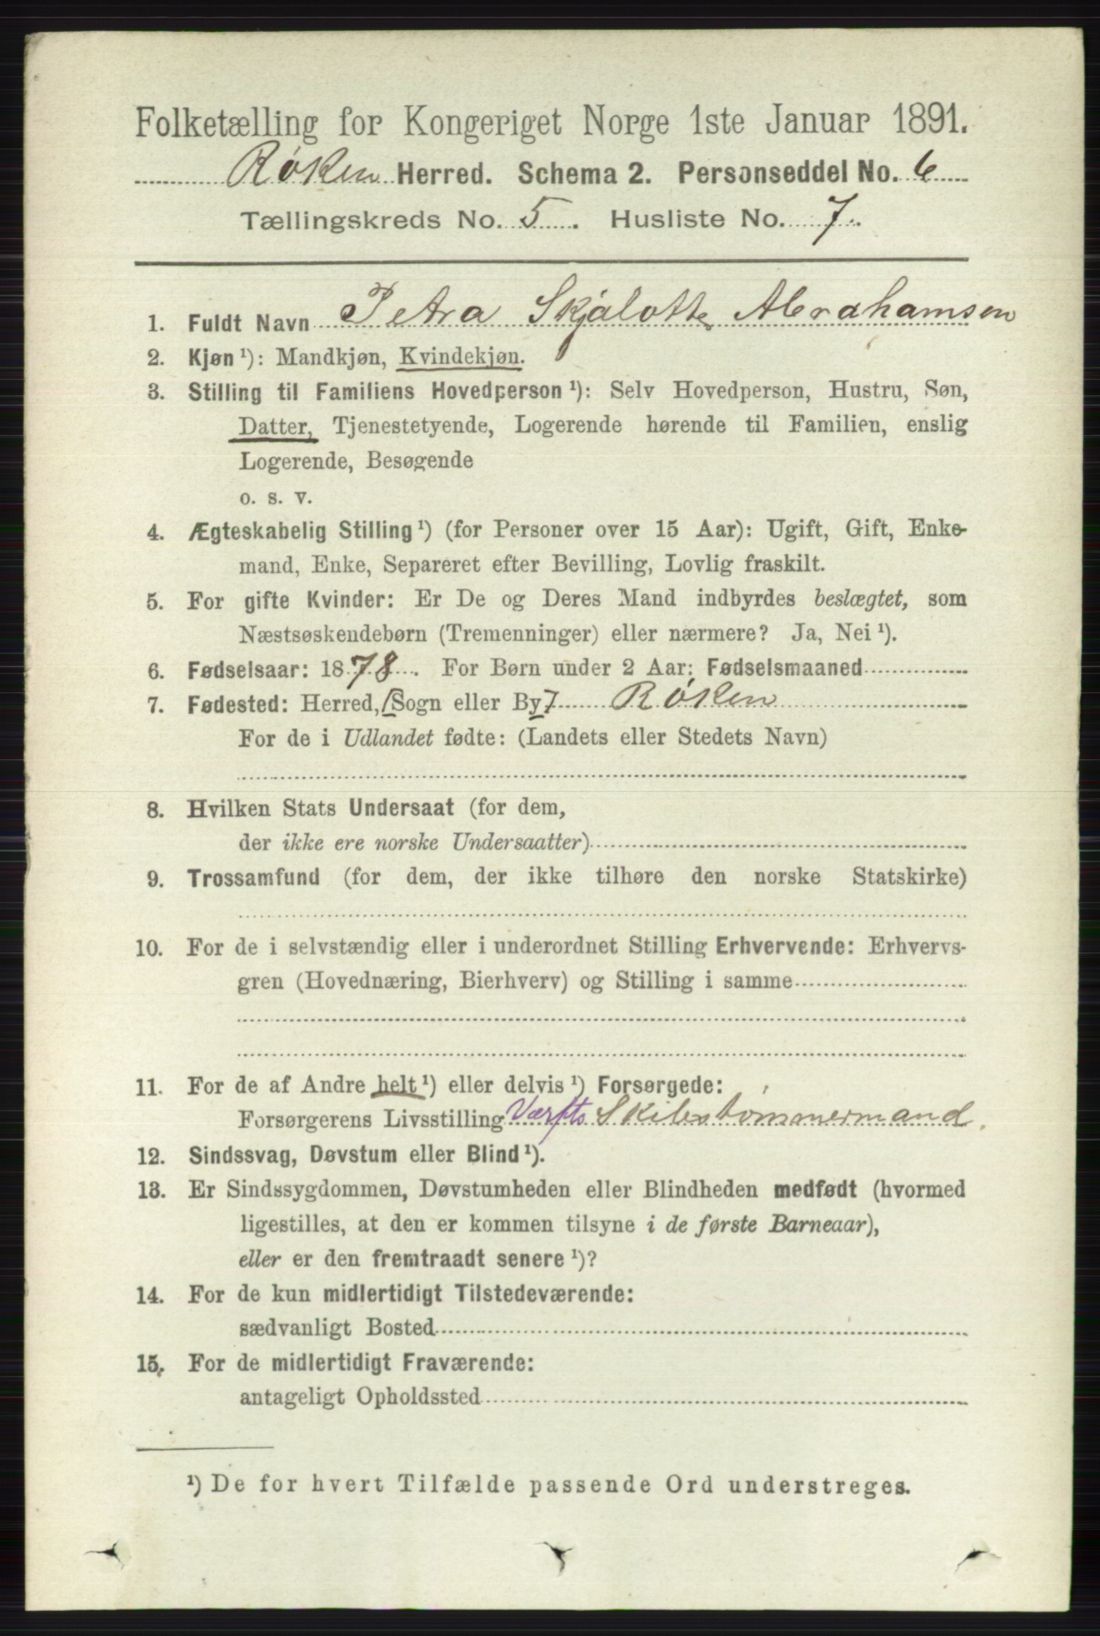 Folketælling for Kongeriget Norge 1ste Januar 1891.
Røken Herred. Schema 2. Personseddel No. 6
Tællingskreds No. 5. Husliste No. 7.
1. Fuldt Navn Petra Skjalotte Abrahamsen
2. Kjøn ¹): Mandkjøn, Kvindekjøn.
3. Stilling til Familiens Hovedperson ¹): Selv Hovedperson, Hustru, Søn,
Datter, Tjenestetyende, Logerende hørende til Familien, enslig
Logerende, Besøgende
o. s. v.
4. Ægteskabelig Stilling ¹) (for Personer over 15 Aar): Ugift, Gift, Enke-
mand, Enke, Separeret efter Bevilling, Lovlig fraskilt.
5. For gifte Kvinder: Er De og Deres Mand indbyrdes beslægtet, som
Næstsøskendebørn (Tremenninger) eller nærmere? Ja, Nei ¹).
6. Fødselsaar: 1878. For Børn under 2 Aar: Fødselsmaaned
7. Fødested: Herred, [Sogn eller By] Røken
For de i Udlandet fødte: (Landets eller Stedets Navn)
8. Hvilken Stats Undersaat (for dem,
der ikke ere norske Undersaatter)
9. Trossamfund (for dem, der ikke tilhøre den norske Statskirke)
10. For de i selvstændig eller i underordnet Stilling Erhvervende: Erhvervs-
gren (Hovednæring, Bierhverv) og Stilling i samme
11. For de af Andre helt ¹) eller delvis ¹) Forsørgede:
Forsørgerens Livsstilling Værfts Skibstømmermand.
12. Sindssvag, Døvstum eller Blind ¹).
13. Er Sindssygdommen, Døvstumheden eller Blindheden medfødt (hvormed
ligestilles, at den er kommen tilsyne i de første Barneaar),
eller er den fremtraadt senere ¹)?
14. For de kun midlertidigt Tilstedeværende:
sædvanligt Bosted
15. For de midlertidigt Fraværende:
antageligt Opholdssted
¹) De for hvert Tilfælde passende Ord understreges.